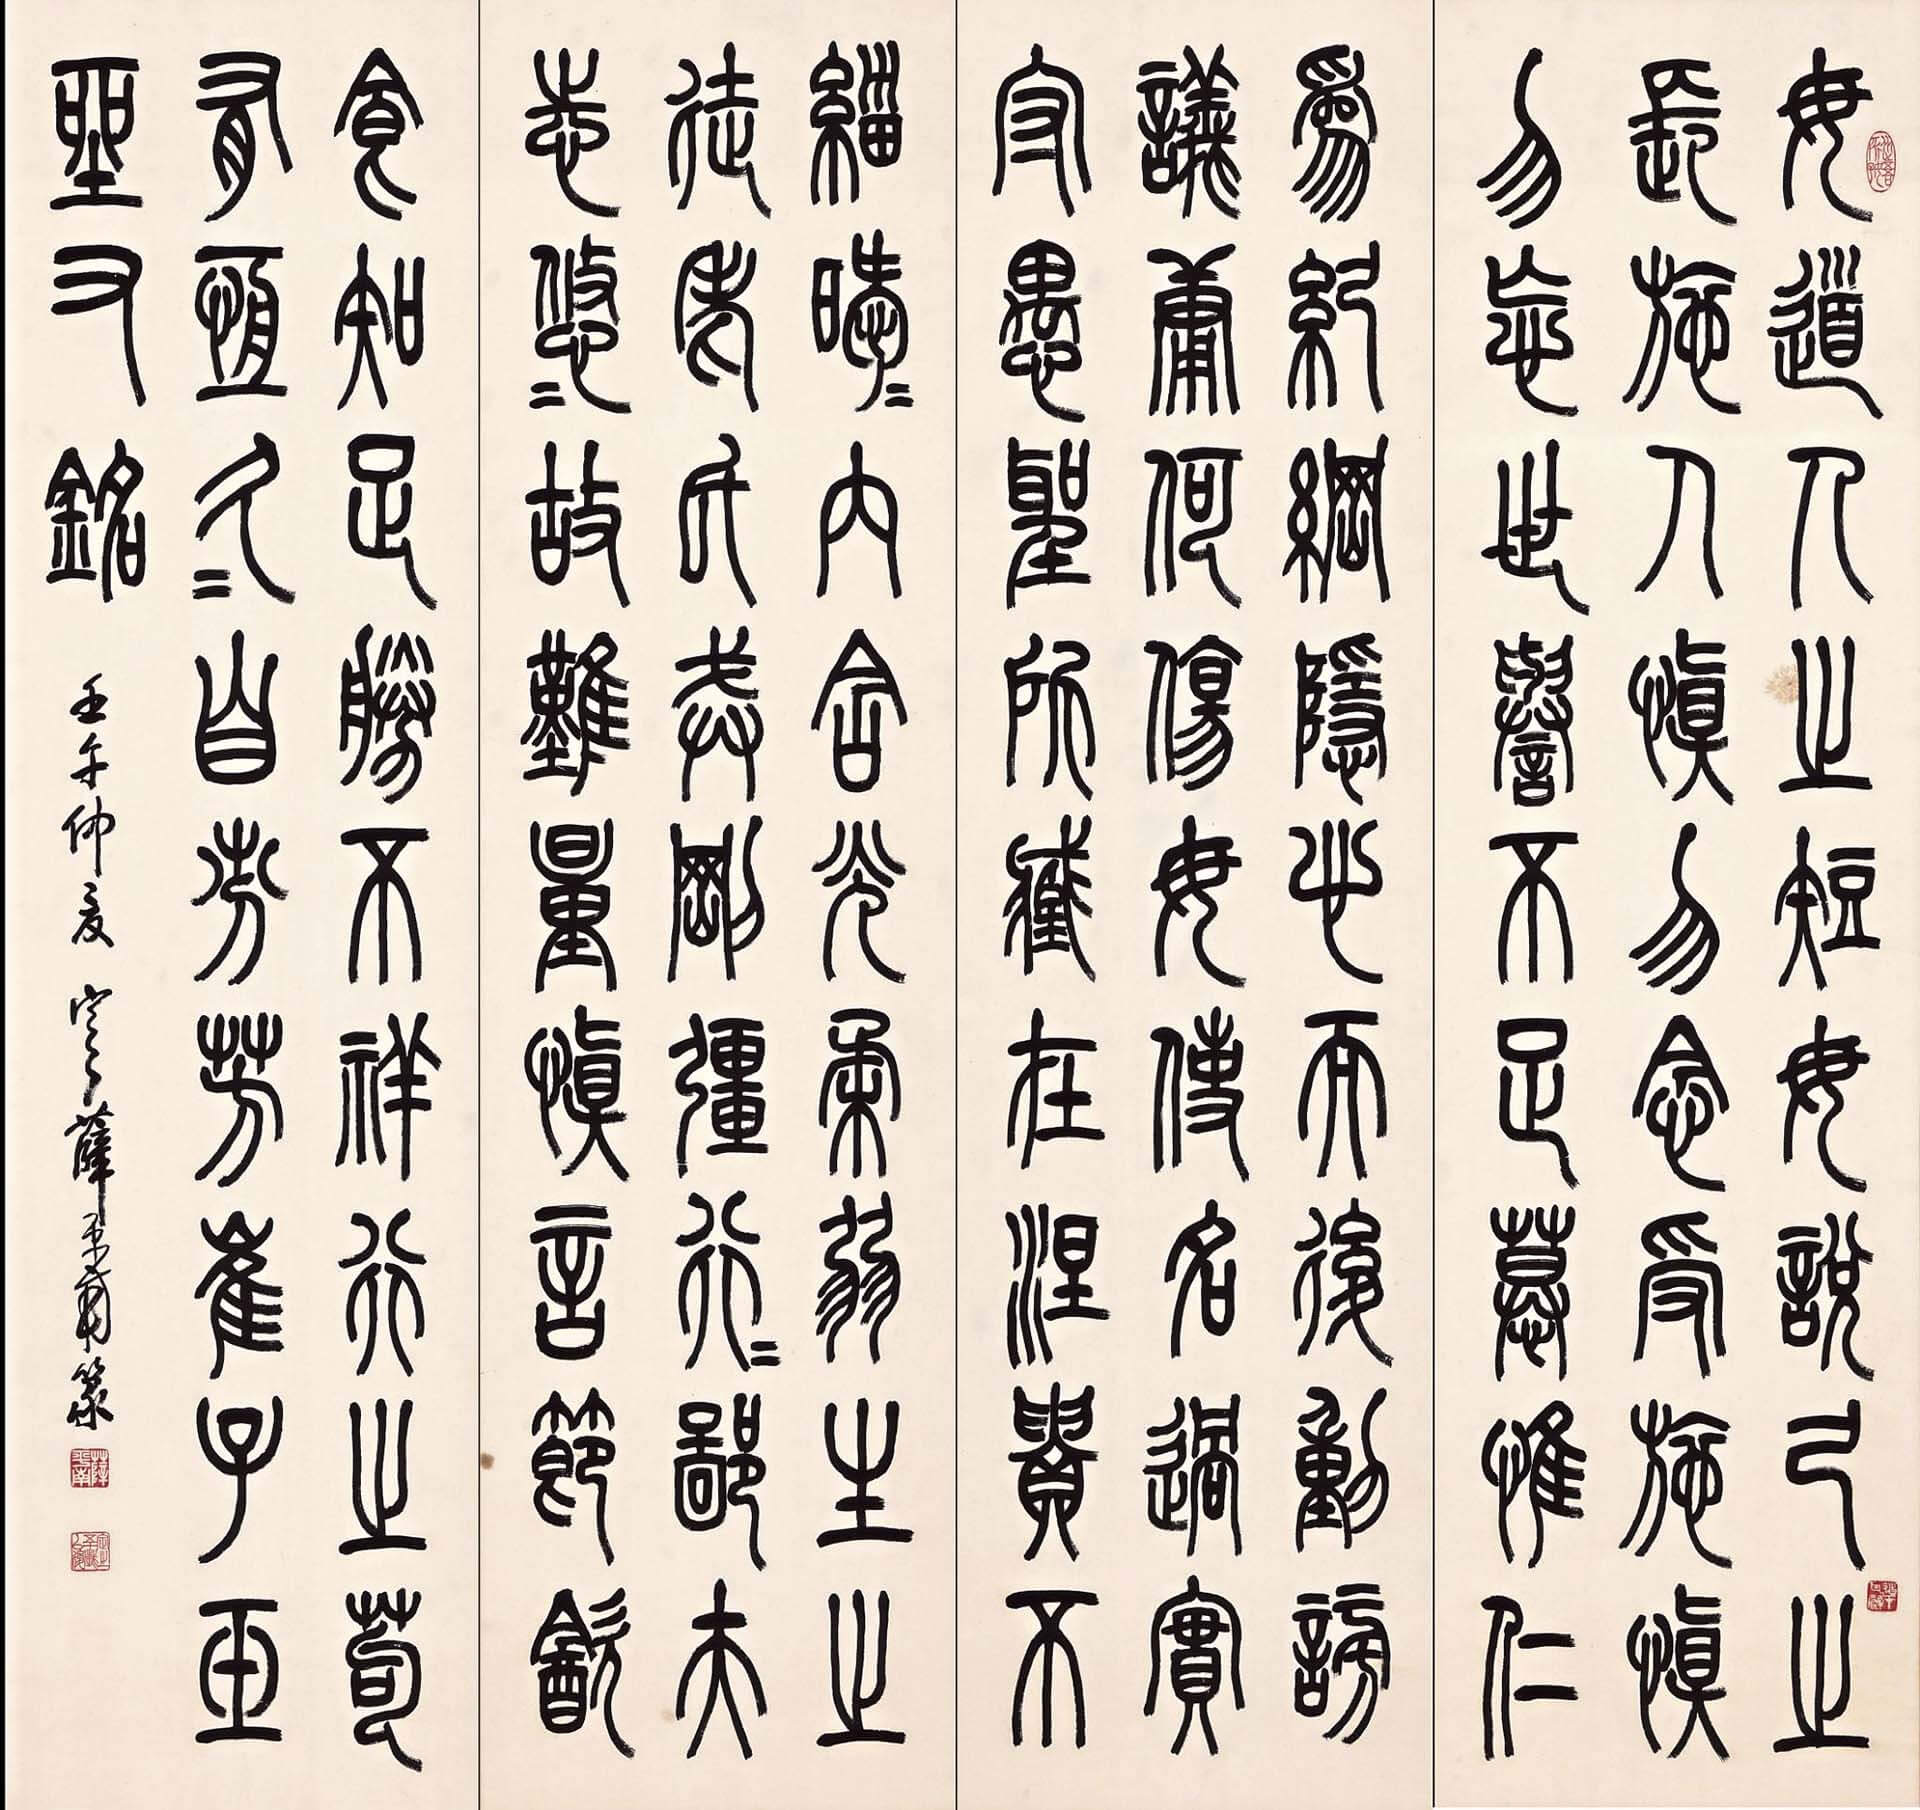 毋道人之短毋說己之
長施人慎勿念受施慎
勿忘世譽不足慕惟仁
為紀綱隱心而後動謗
議庸何傷毋使名過實
守愚聖所臧在涅貴不
緇曖〻內含光柔弱生之
徒老氏戒剛彊行〻鄙夫
志悠〻故難量慎言節飲
食知足勝不祥行之苟
有恆久〻自芬芳崔子玉
坐右銘 壬午仲夏 定之薛平南篆